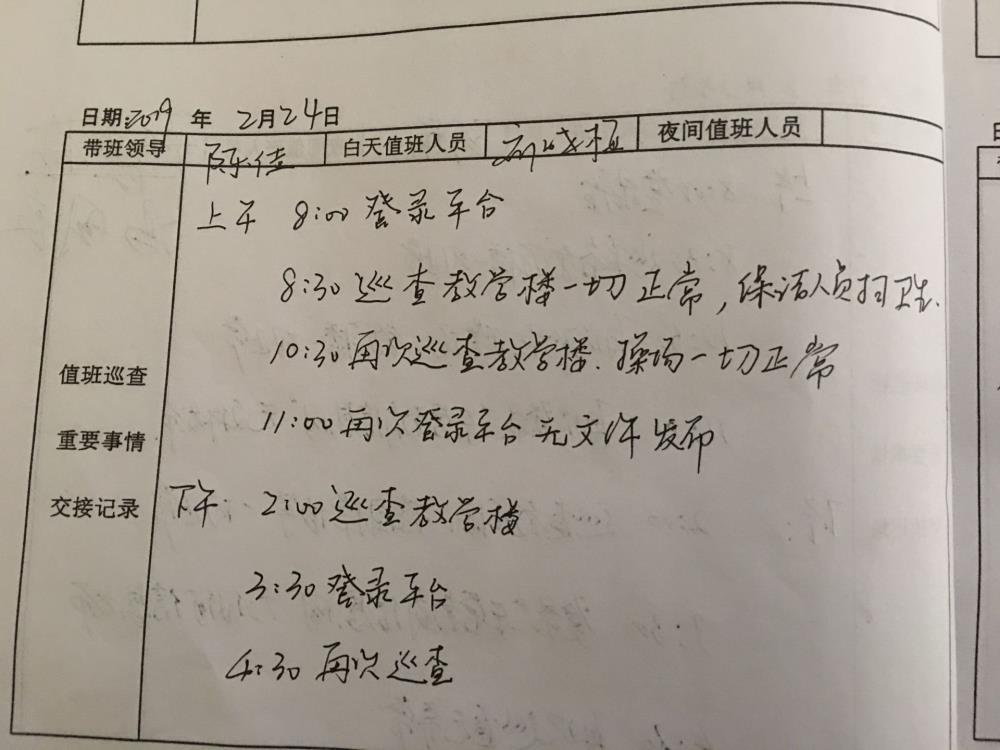 日期:2019 年 2月24日
带班领导 陈佳 白天值班人员 夜间值班人员
上午 8:00 登录平台
8:30 巡查教学楼一切正常，保洁人员扫卫生.
10:30 再次巡查教学楼.操场一切正常
值班巡查
11:00 再次登录平台 无文件发布
重要事情
交接记录
下午. 2:00 巡查教学楼
3:30 登录平台
4:30 再次巡查